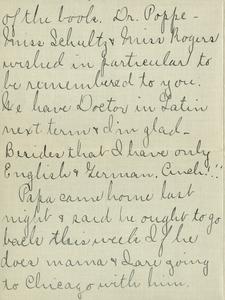 of the books. Dr. Poppe -
Miss Schultz & Miss Rogers
wished in particular to
be remembered to you.
We have Doctor in Latin
next term & I'm glad -
Besides that I have only
English & German, Cinch!!!
Papa came home last
night & said he ought to go
back this week If he
does mama & I are going
to Chicago with him.